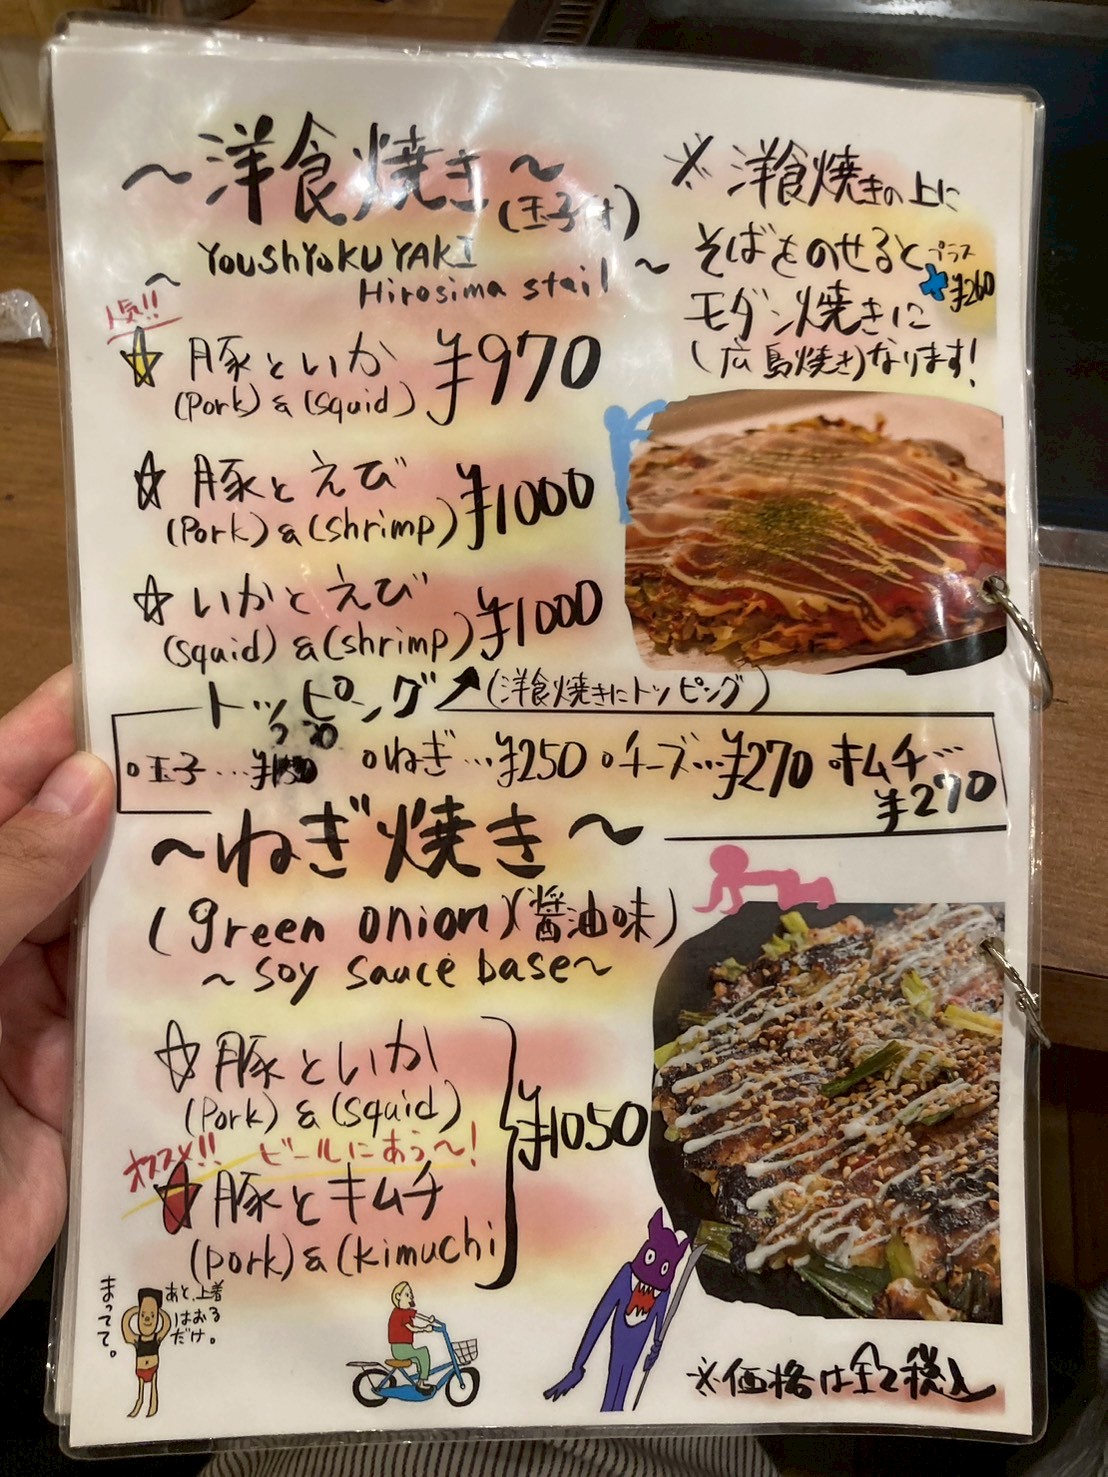 ～洋食焼き～
(玉子付)
～YOUShYOKUYAKI
Hirosima stail～
人気!!
☆豚といか ¥970
(Pork) & (Squid)
☆豚とえび ¥1000
(Pork) & (Shrimp)
☆いかとえび ¥1000
(Squid) & (Shrimp)
※洋食焼きの上に
そばをのせると プラス
+¥260
モダン焼きに
(広島焼き)なります!
トッピング (洋食焼きにトッピング)
玉子…
ねぎ…¥250
チーズ…¥270
キムチ…
¥270
～ねぎ焼き～
(green onion)(醤油味)
～Soy Sauce base～
☆豚といか
(Pork) & (Squid)
オススメ!! ビールにあう～!
☆豚とキムチ
(pork) & (kimuchi)
¥1050
あと、上着
はおる
だけ。
まってて。
※価格は全て税込